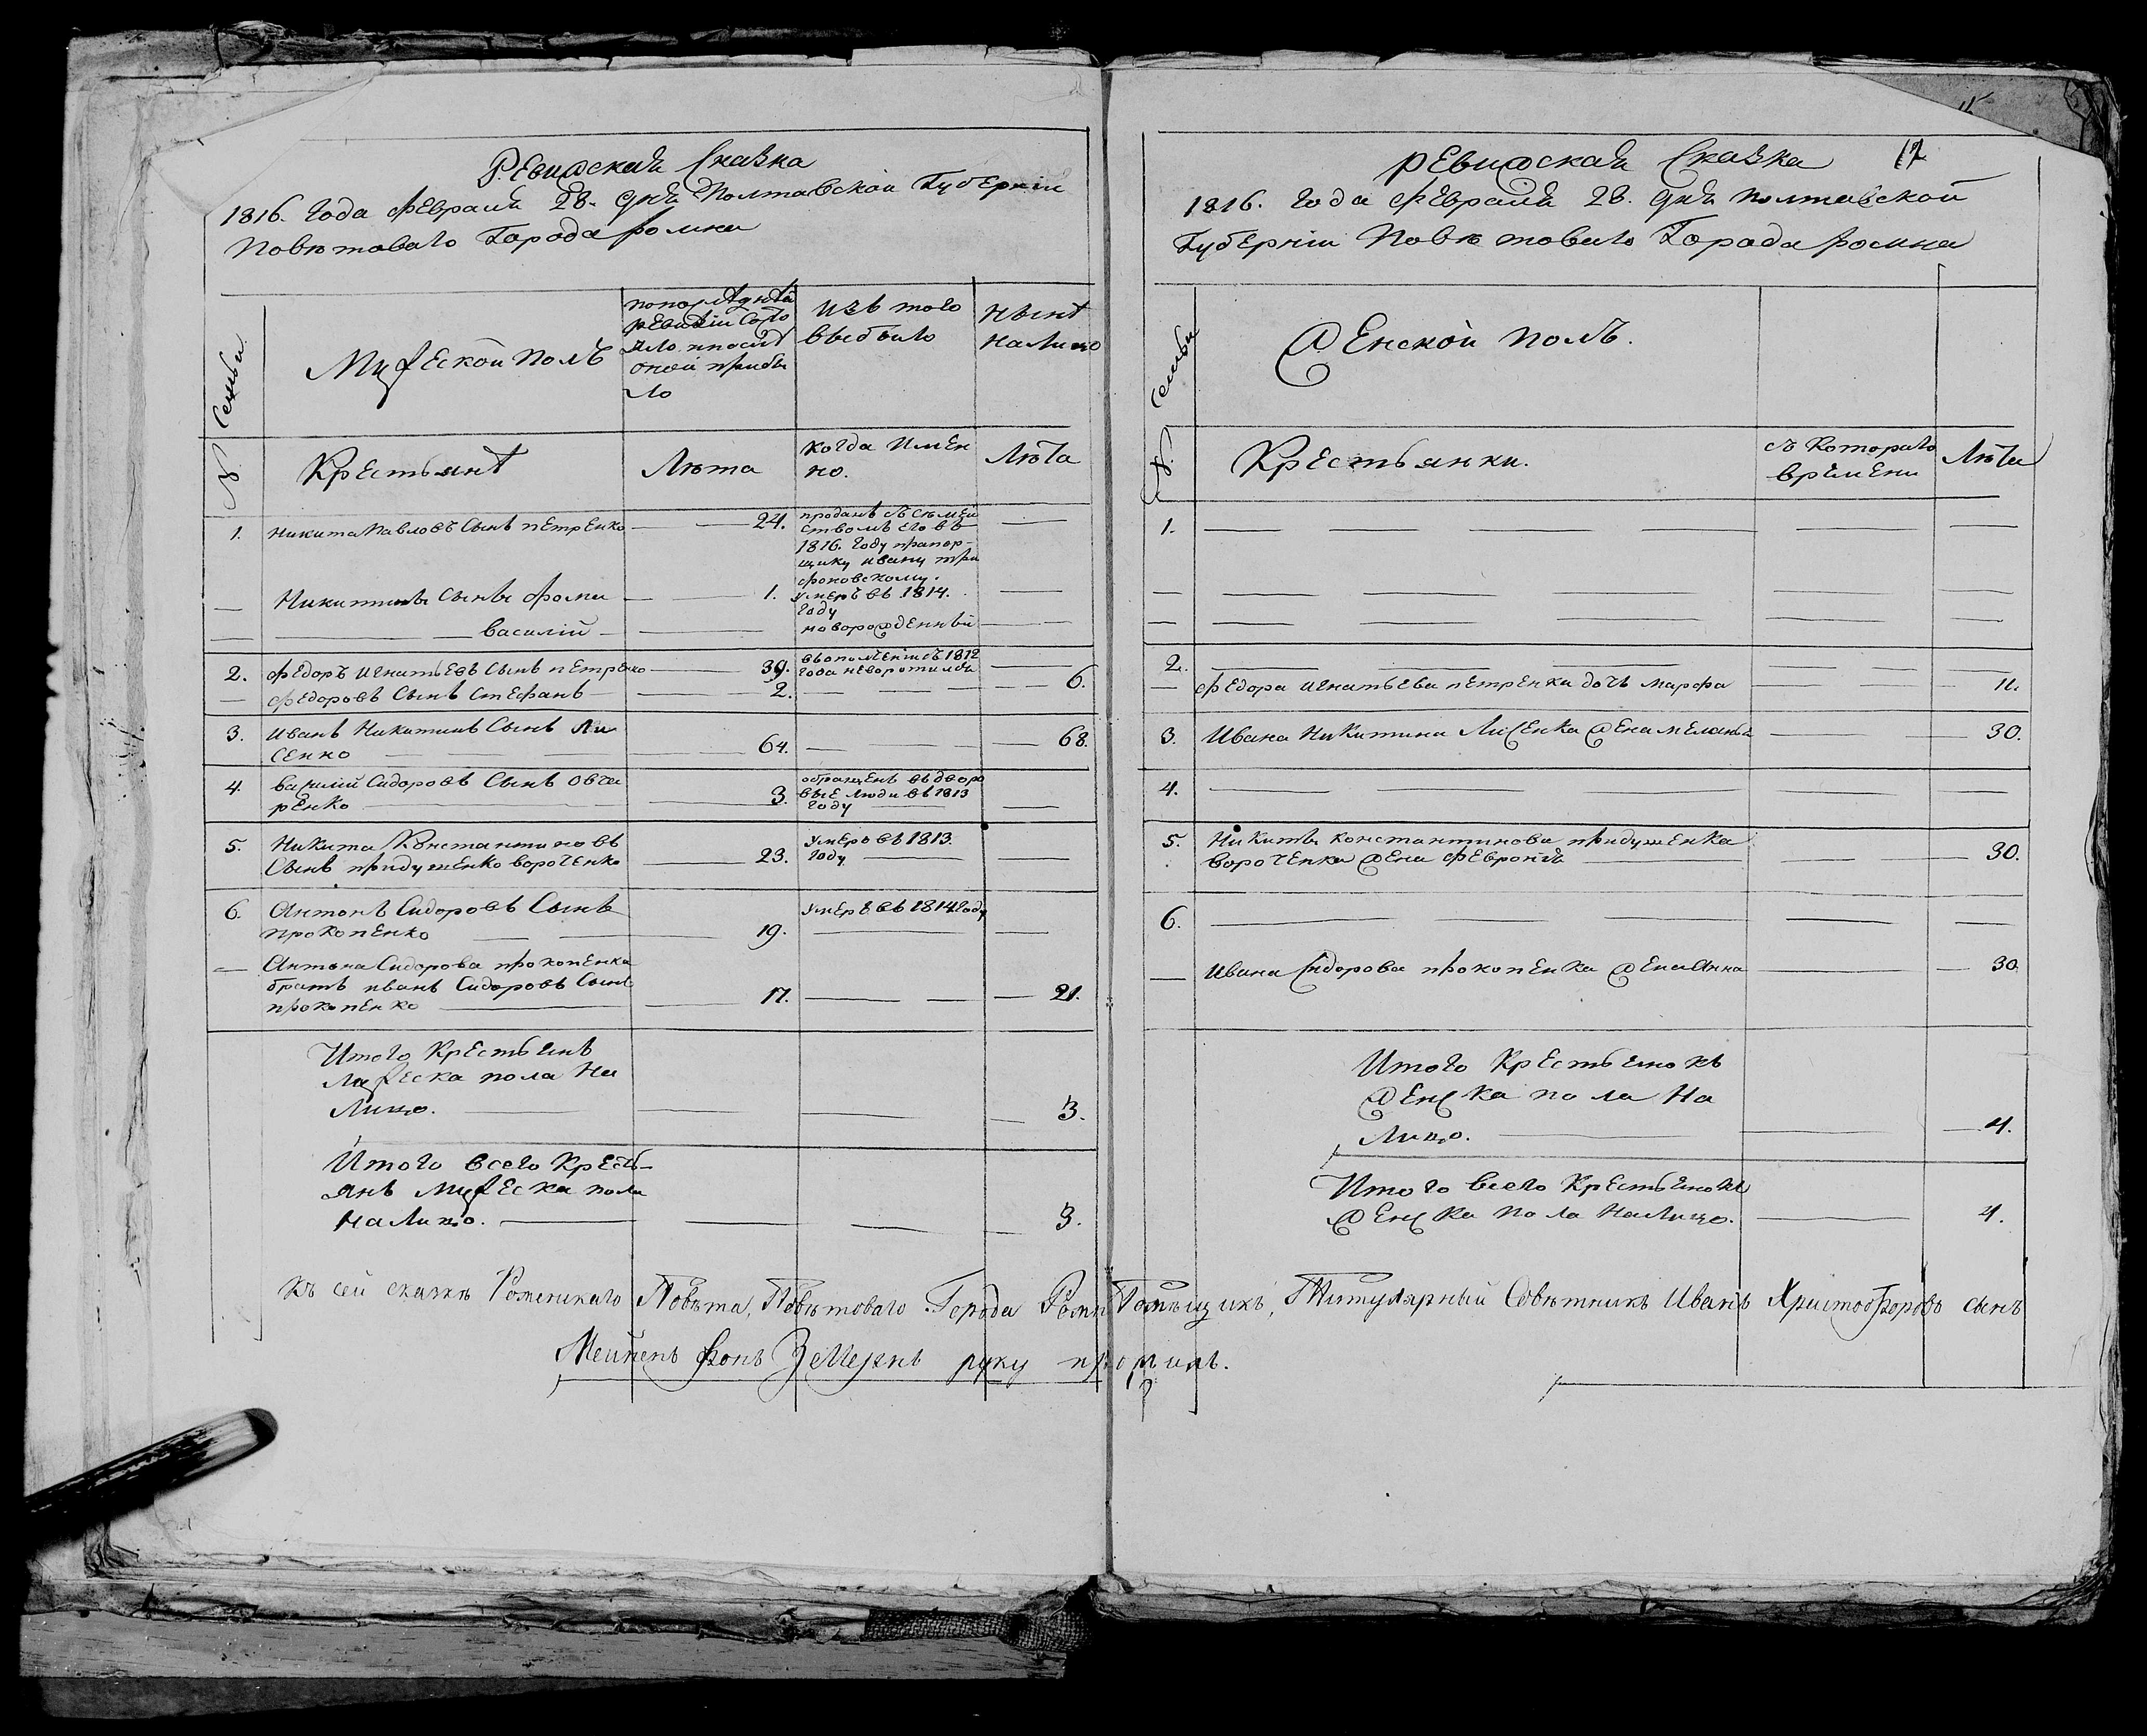 Ревижская Сказка
1816. года февраля 28. дня Полтавской Губернии
Повѣтоваго Города Ромна
№ Семьи
Мужеской полъ
попослѣдней
ревизіи состо
яло и послѣ
оной прибы
ло
изъ того
выбыло
нынѣ
на лицо
Крестьянѣ
Лѣта
когда имен
но.
Лѣта
1. Никита Павловъ Сынъ петренко 24.
проданъ съ семей
ствомъ его въ
1816. году прапор-
щику ивану три
фоновскому.
— Никитинъ Сынъ фома 1.
умеръ въ 1814.
году
— василій
новорожденный
2. федоръ игнатьевъ Сынъ петренко 39.
въополченіи съ 1812
года неворотился
— федоровъ Сынъ Стефанъ 2. 6.
3. иванъ Никитинъ Сынъ Ли
сенко 64. 68.
4. василий Сидоровъ Сынъ овча
ренко 3.
обращенъ въ дворо
вые люди въ 1813
году
5. Никита Константиновъ
Сынъ придушенко вороченко 23.
умеръ въ 1813.
году
6. Антонъ Сидоровъ Сынъ
прокопенко 19.
умеръ въ 1814 году
— Антона Сидорова прокопенка
братъ иванъ Сидоровъ Сынъ
прокопенко 17. 21.
Итого Крестьянъ
мужеска пола на
лицо. 3.
Итого всего Кресть-
янъ мужеска пола
налицо. 3.
ревижская Сказка 12
1816. года февраля 28. дня полтавской
Губернии Повѣтоваго Города ромна
№ Семьи
Женской полъ.
Крестьянки.
съ котораго
времени
Лѣта
1.
2.
— федора игнатьева петренка дочъ марфа 11.
3. Ивана Никитина Лисенка жена меланья 30.
4.
5. Никиты константинова придушенка
вороченка жена февронія 30.
6.
— ивана Сидорова прокопенка жена Анна 30.
Итого Крестьянокъ
женска пола на
лицо. 4.
Итого всего Крестьянокъ
женска пола налицо. 4.
Къ сей сказкѣ Роменскаго Повѣта, Повѣтоваго Города Ромна Помѣщикъ, Титулярный Совѣтникъ Иванъ Христофоровъ сынъ
фонъ руку приложилъ.